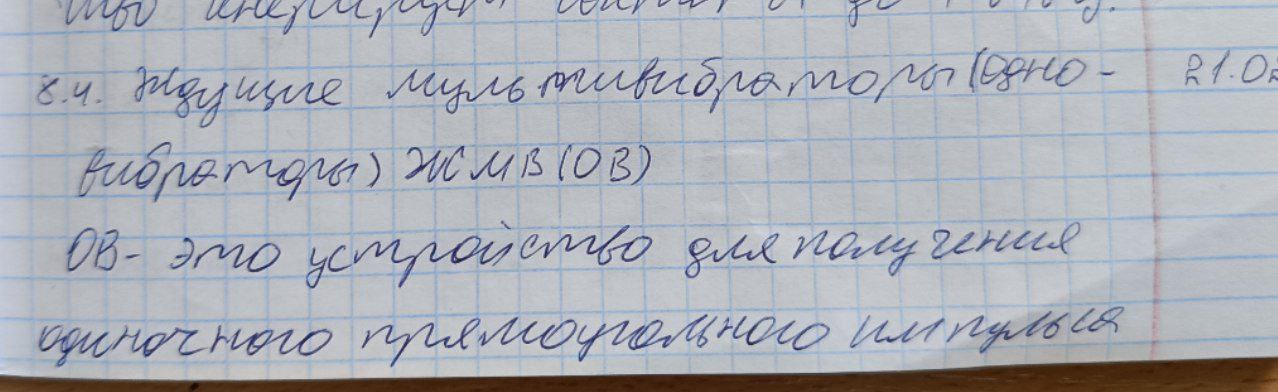 8.4. Ждущие мультивибраторы (одно- 21.02
вибраторы) ЖМВ (ОВ)
ОВ - это устройство для получения
одиночного прямоугольного импульса